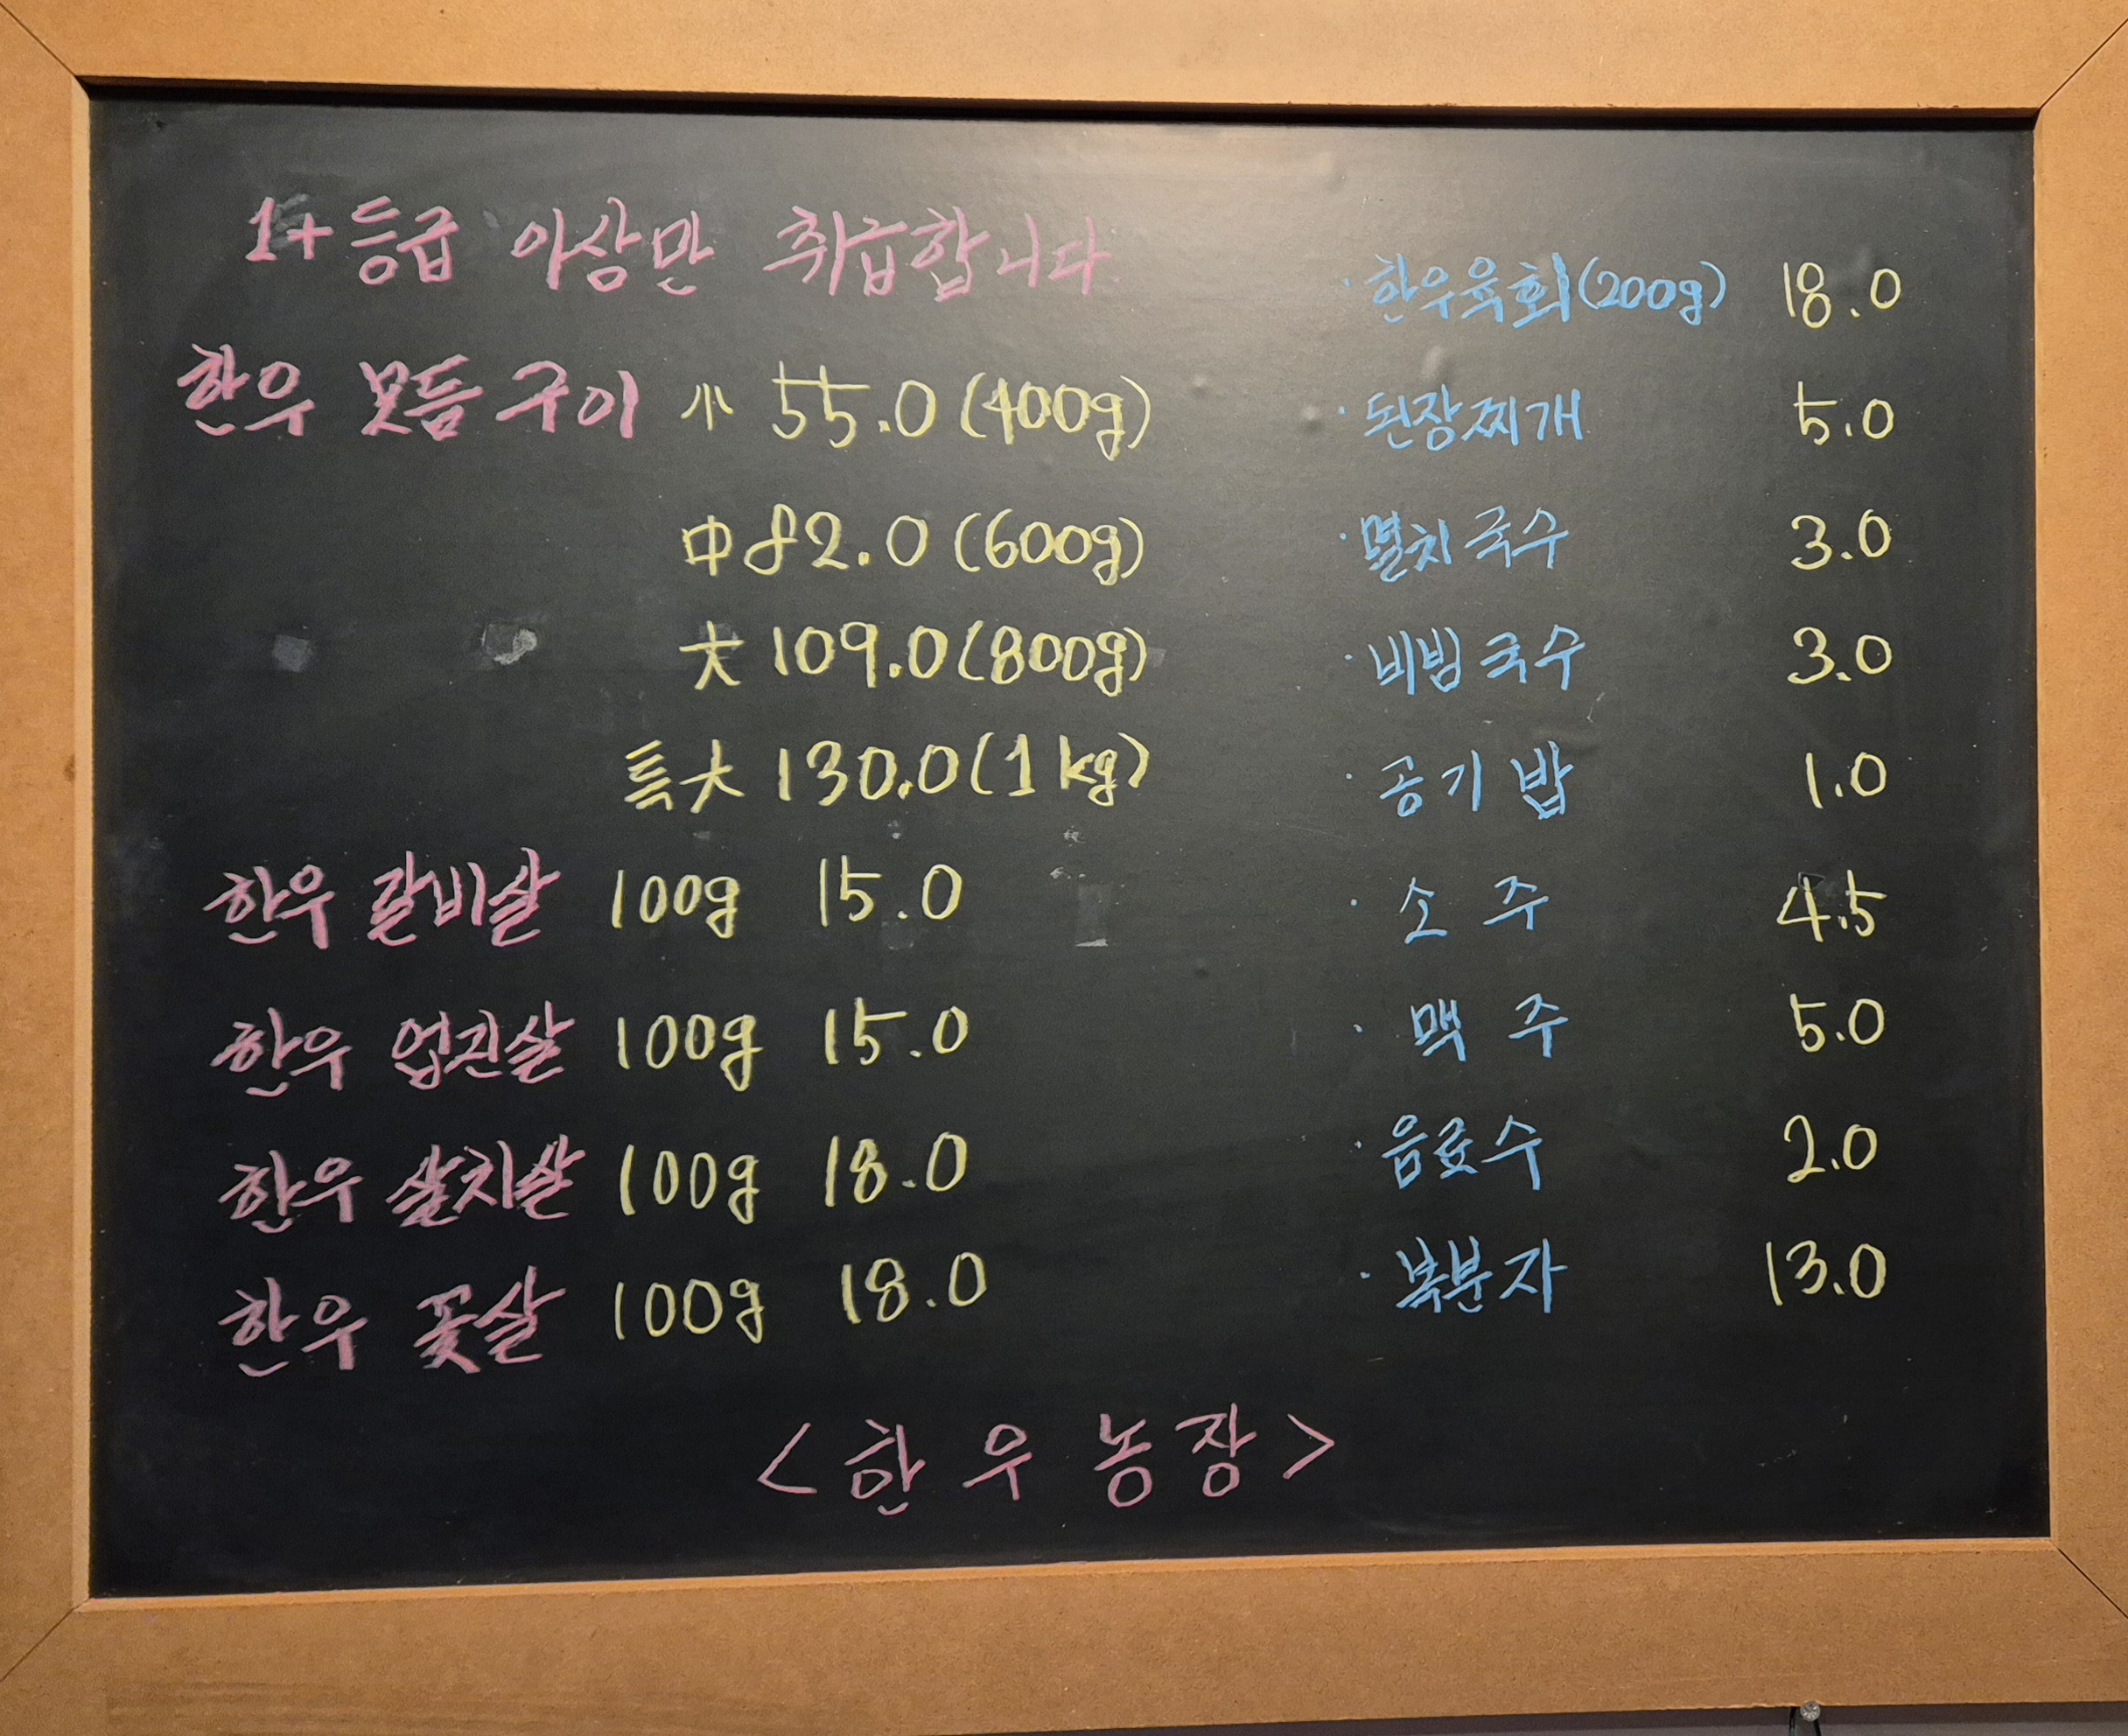 1+등급 이상만 취급합니다.
한우 모듬구이 小 55.0 (400g)
中 82.0 (600g)
大 109.0 (800g)
특大 130.0 (1kg)
한우 갈비살 100g 15.0
한우 업진살 100g 15.0
한우 살치살 100g 18.0
한우 꽃살 100g 18.0
· 한우육회(200g) 18.0
· 된장찌개 5.0
· 멸치국수 3.0
· 비빔국수 3.0
· 공기밥 1.0
· 소주 4.5
· 맥주 5.0
· 음료수 2.0
· 복분자 13.0
<한우농장>